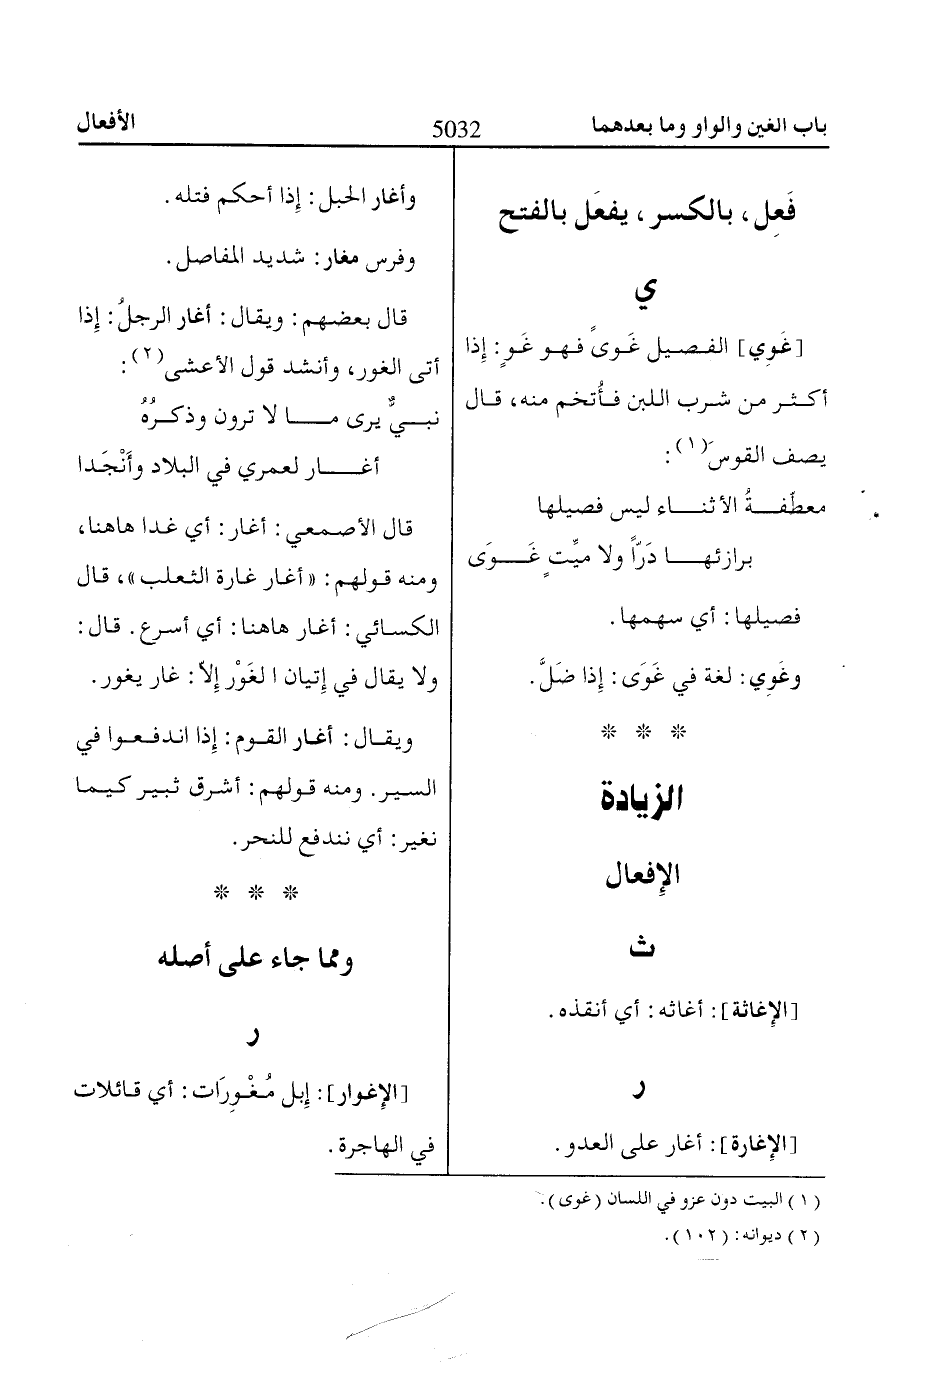 باب الغين والواو وما بعدهما
5032
الأفعال
فَعِل، بالكسر، يفعَل بالفتح
ي
[غَوِي] الفصيل غَوىً فهو غَوٍ: إذا
أكثر من شرب اللبن فأُتخم منه، قال
يصف القوسَ(١):
معطّفةُ الأثناء ليس فصيلها
برازئها دَرّاً ولا ميِّتٍ غَوَى
فصيلها: أي سهمها.
وغَوِي: لغة في غَوَى: إذا ضَلَّ.
* * *
الزيادة
الإفعال
ث
[الإغاثة]: أغاثه: أي أنقذه.
ر
[الإغارة]: أغار على العدو.
وأغار الحبل: إذا أحكم فتله.
وفرس مغار: شديد المفاصل.
قال بعضهم: ويقال: أغار الرجلُ: إذا
أتى الغور، وأنشد قول الأعشى(٢):
نبيٌّ يرى ما لا ترون وذكرُهُ
أغار لعمري في البلاد وأَنْجَدا
قال الأصمعي: أغار: أي غدا هاهنا،
ومنه قولهم: «أغار غارة الثعلب»، قال
الكسائي: أغار هاهنا: أي أسرع. قال:
ولا يقال في إتيان الغَوْر إلاّ: غار يغور.
ويقال: أغار القوم: إذا اندفعوا في
السير. ومنه قولهم: أشرق ثبير كيما
نغير: أي نندفع للنحر.
* * *
ومما جاء على أصله
ر
[الإغوار]: إبل مُغْوِرَات: أي قائلات
في الهاجرة.
(١) البيت دون عزو في اللسان (غوى).
(٢) ديوانه: (١٠٢).